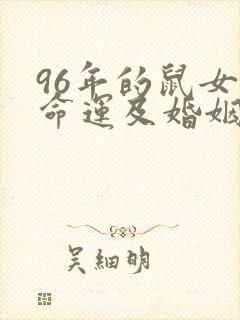 96年的鼠女
命运及婚姻
吴细明